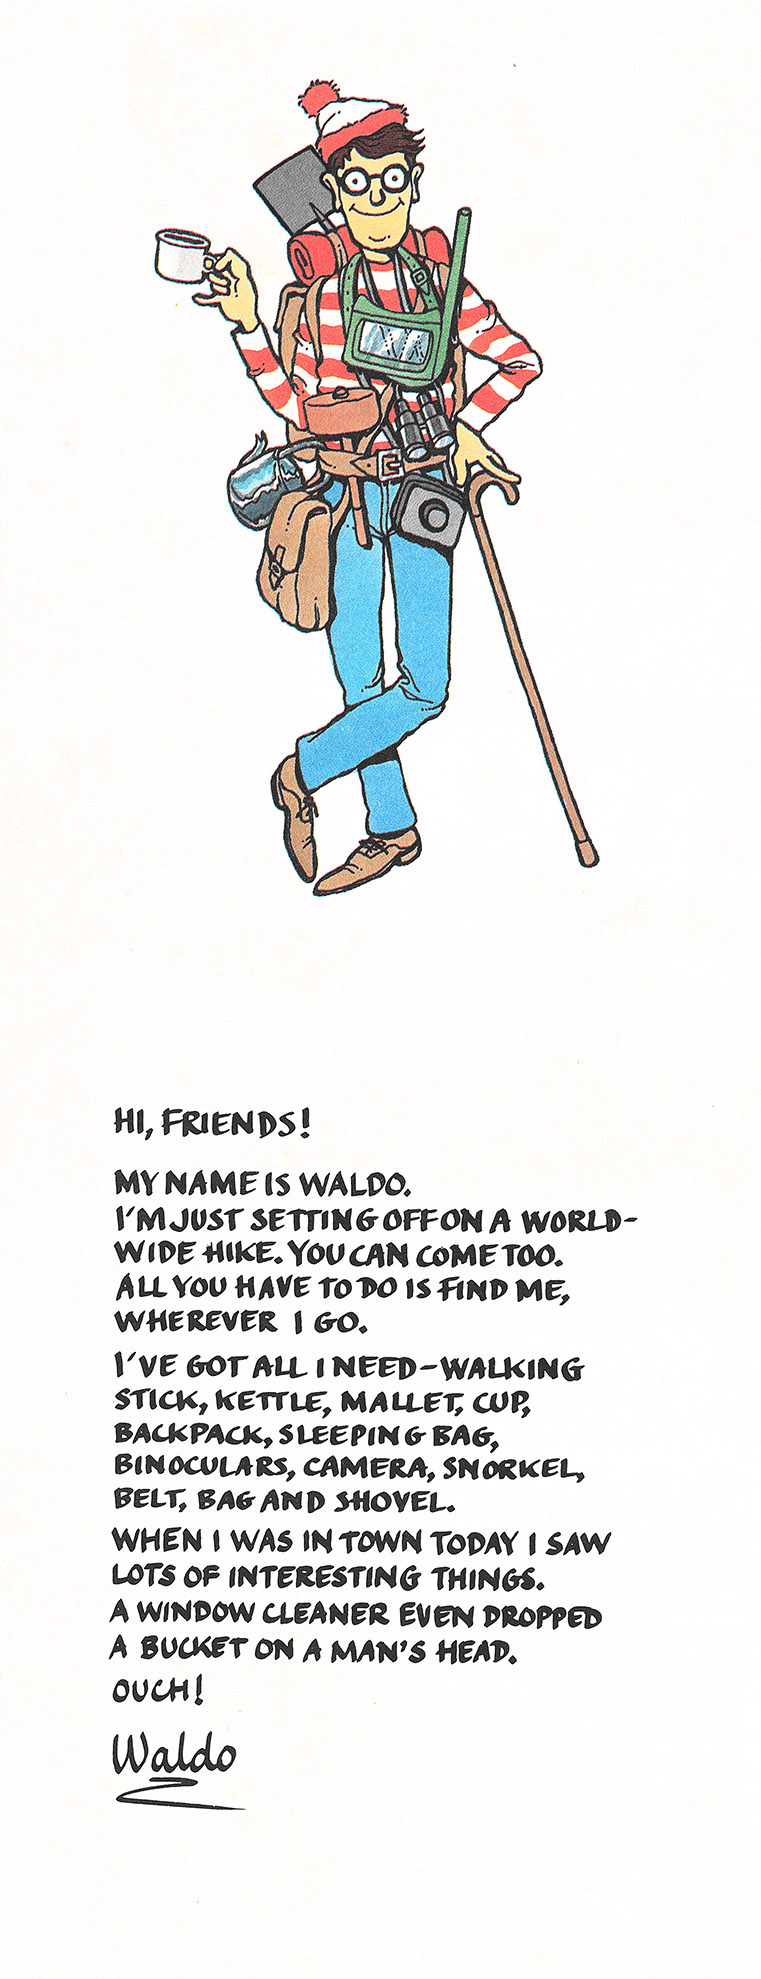 HI, FRIENDS!
MY NAME IS WALDO.
I'M JUST SETTING OFF ON A WORLD-
WIDE HIKE. YOU CAN COME TOO.
ALL YOU HAVE TO DO IS FIND ME,
WHEREVER I GO.
I'VE GOT ALL I NEED-WALKING
STICK, KETTLE, MALLET, CUP,
BACKPACK, SLEEPING BAG,
BINOCULARS, CAMERA, SNORKEL,
BELT, BAG AND SHOVEL.
WHEN I WAS IN TOWN TODAY I SAW
LOTS OF INTERESTING THINGS.
A WINDOW CLEANER EVEN DROPPED
A BUCKET ON A MAN'S HEAD.
OUCH!
Waldo